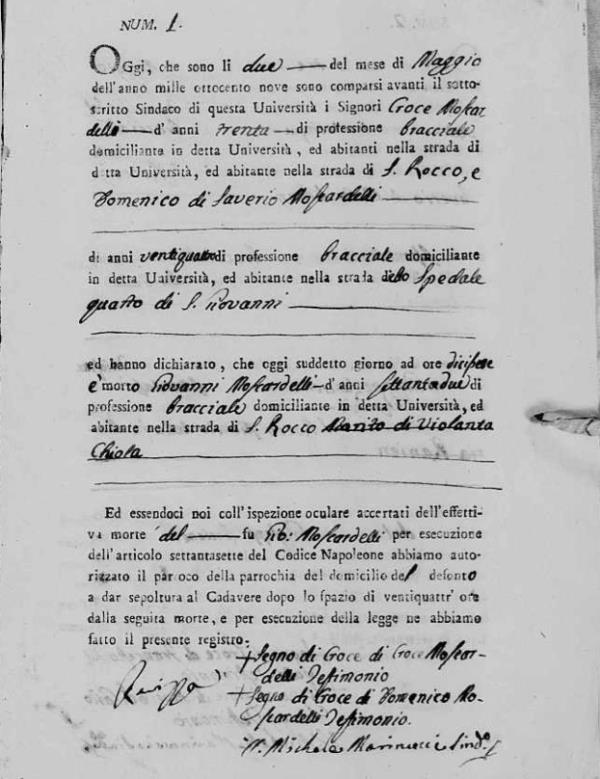 NUM. 1.
OGgi, che sono li due del mese di Maggio
dell'anno mille ottocento nove sono comparsi avanti il sotto-
scritto Sindaco di questa Università i Signori Croce Moscar
delli d' anni trenta di professione bracciale
domiciliante in detta Università, ed abitanti nella strada di
detta Università, ed abitante nella strada di S. Rocco, e
Domenico di Saverio Moscardelli
di anni ventiquattro di professione bracciale domiciliante
in detta Università, ed abitante nella strada dello Spedale
quarto di S. Giovanni
ed hanno dichiarato, che oggi suddetto giorno ad ore diciasette
è morto Giovanni Moscardelli d' anni settantadue di
professione bracciale domiciliante in detta Università, ed
abitante nella strada di S. Rocco Marito di Violanta
Chiola
Ed essendoci noi coll'ispezione oculare accertati dell'effetti-
va morte del fu Gio: Moscardelli per esecuzione
dell'articolo settantasette del Codice Napoleone abbiamo auto-
rizzato il paroco della parrochia del domicilio del defonto
a dar sepoltura al Cadavere dopo lo spazio di ventiquattr' ore
dalla seguita morte, e per esecuzione della legge ne abbiamo
fatto il presente registro.
+ Segno di Croce di Croce Moscar-
delli Testimonio
+ Segno di Croce di Domenico Mo-
scardelli Testimonio.
Michele Marinucci Sind.o